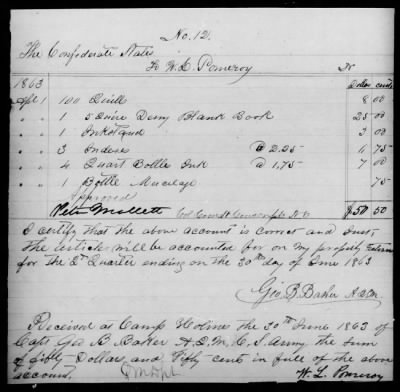 No. 12.
The Confederate States
To W. L. Pomeroy Dr
1863 Dollar cents
Apl 1 100 Quills 8 00
" " 1 5 Quire Demy Blank Book 25 00
" " 1 Inkstand 3 00
" " 3 Indexes @ 2.25 6 75
" " 4 Quart Bottle Ink @ 1.75 7 00
" " 1 Bottle Mucilage 75
Approved
Peter Mallett Col Comdt Conscripts N.C. $50 50
I certify that the above account is correct and just,
the articles will be accounted for on my property return
for the 2d Quarter ending on the 30th day of June 1863
Geo. B. Baker A.Q.M.
Received at Camp Holmes the 30th June 1863 of
Capt Geo B Baker A.Q.M. C.S. Army, the sum
of fifty Dollar, and fifty cents in full of the above
account.
W. L. Pomeroy